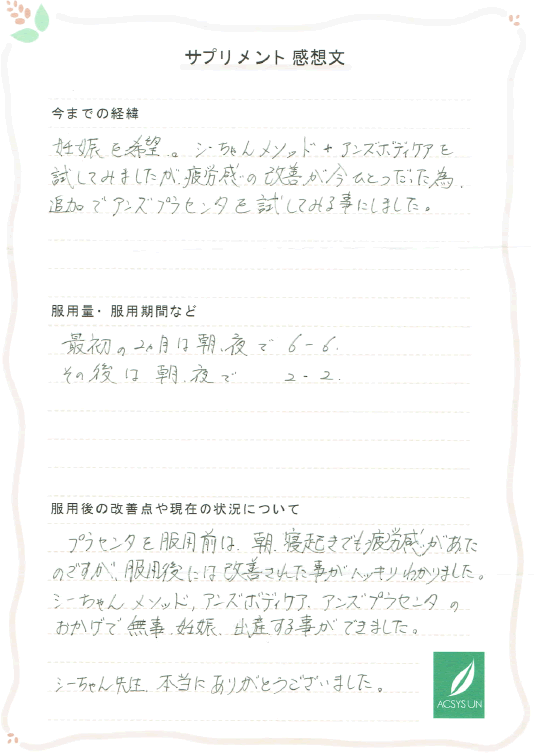 サプリメント 感想文
今までの経緯
妊娠を希望。シーちゃんメソッド+アンズボディケアを
試してみましたが、疲労感の改善が今ひとつだった為、
追加でアンズプラセンタを試してみる事にしました。
服用量・服用期間など
最初の2ヵ月は朝、夜で 6-6.
その後は朝、夜で 2-2.
服用後の改善点や現在の状況について
プラセンタを服用前は、朝、寝起きでも疲労感があった
のですが、服用後には改善された事がハッキリわかりました。
シーちゃんメソッド、アンズボディケア、アンズプラセンタの
おかげで無事、妊娠、出産する事ができました。
シーちゃん先生、本当にありがとうございました。
ACSYSUN